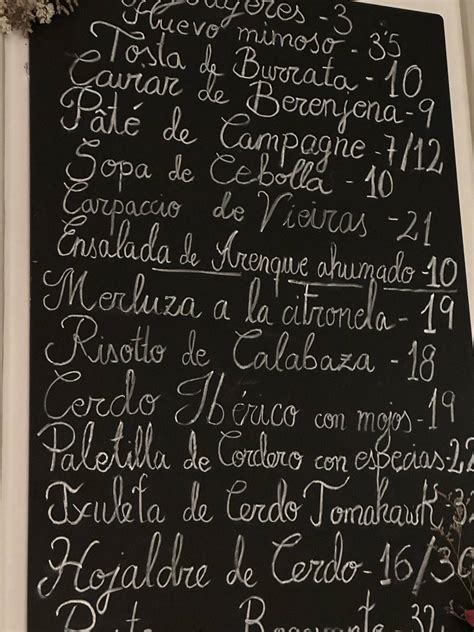 - 3
Huevo mimoso - 3'5
Tosta de Burrata - 10
Caviar de Berenjena - 9
Pâté de Campagne - 7/12
Sopa de Cebolla - 10
Carpaccio de Vieiras - 21
Ensalada de Arenque ahumado - 10
Merluza a la citronela - 19
Risotto de Calabaza - 18
Cerdo Ibérico con mojos - 19
Paletilla de Cordero con especias - 22
Txuleta de Cerdo Tomahawk -
Hojaldre de Cerdo - 16/30
- 32